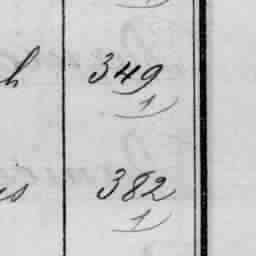 h 349
1
s 382
1